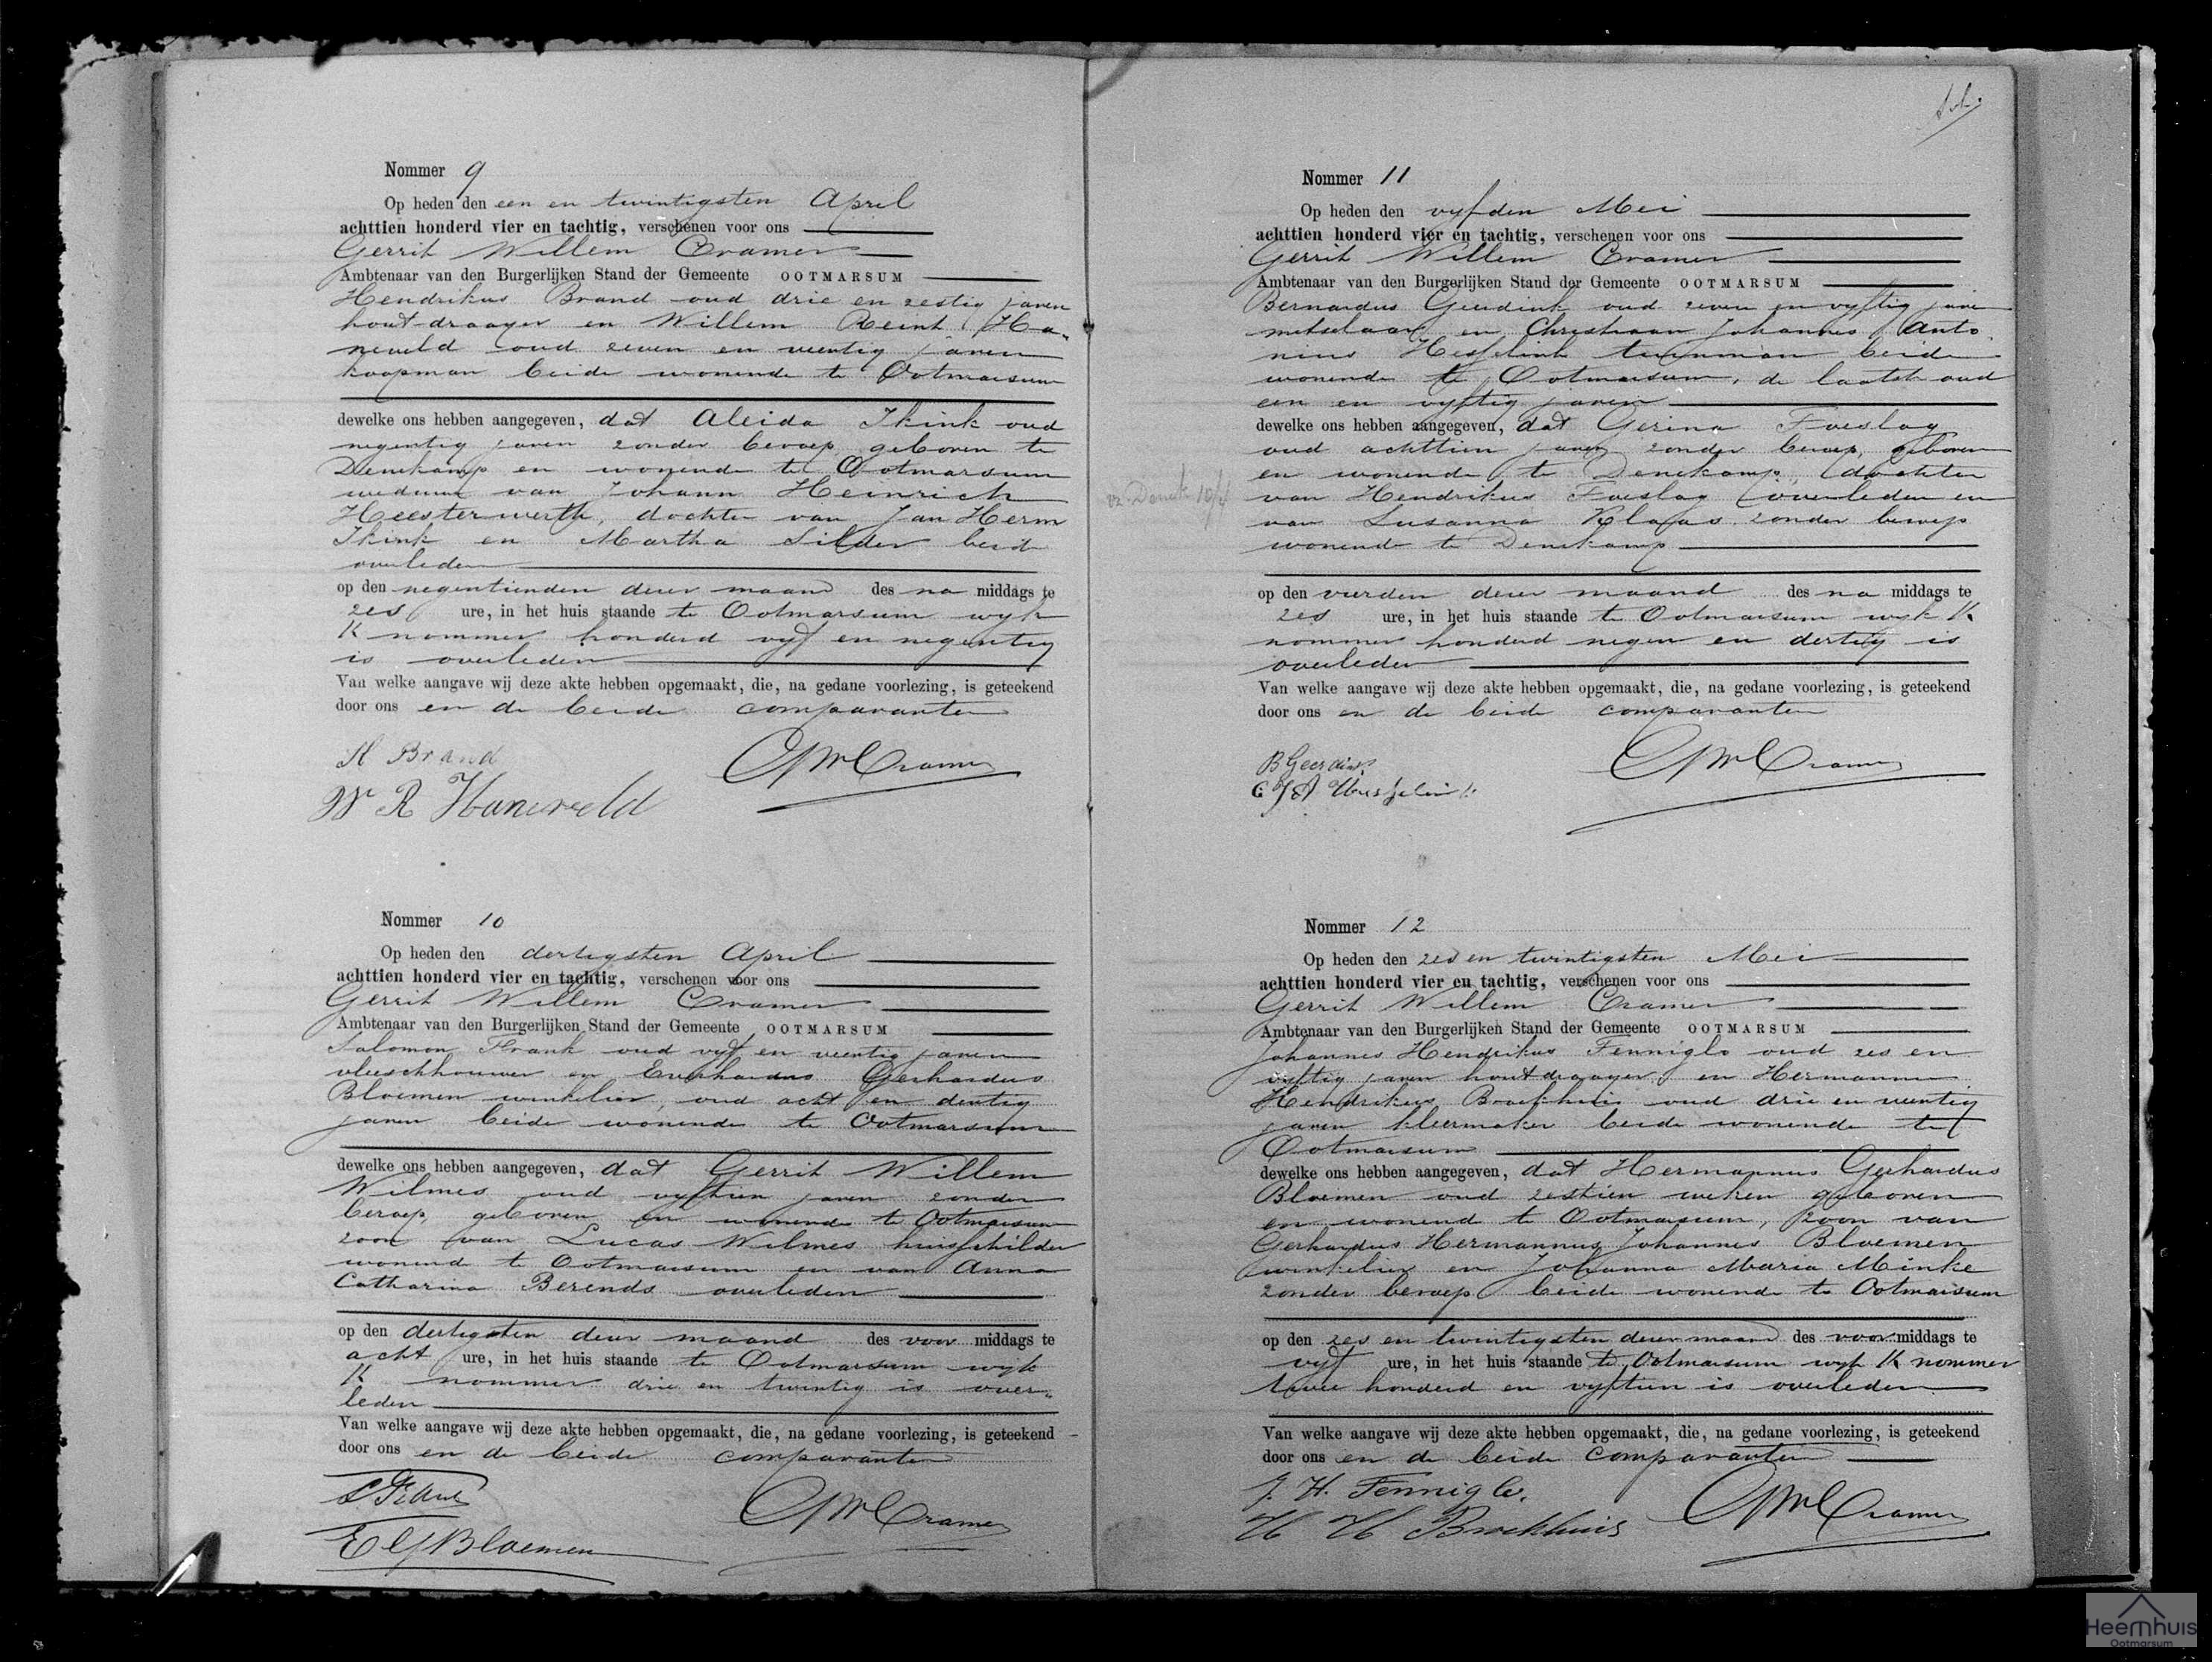 Nommer 9
Op heden den een en twintigsten April
achttien honderd vier en tachtig, verschenen voor ons
Gerrit Willem Cramer
Ambtenaar van den Burgerlijken Stand der Gemeente OOTMARSUM
Hendrikus Brand oud drie en zestig jaren
houtdraayer en Willem Reint Ha-
neveld oud zeven en veertig jaren
koopman beide wonende te Ootmarsum
dewelke ons hebben aangegeven, dat Aleida Ikink oud
negentig jaren zonder beroep geboren te
Denekamp en wonende te Ootmarsum
weduwe van Johann Heinrich
Heesterwerth, dochter van Jan Herm
Ikink en Martha Silder beide
overleden
op den negentienden dezer maand des na middags te
zes ure, in het huis staande te Ootmarsum wyk
K nommer honderd vyf en negentig
is overleden
Van welke aangave wij deze akte hebben opgemaakt, die, na gedane voorlezing, is geteekend
door ons en de beide comparanten
H Brand
GWCramer
W R Haneveld
Nommer 10
Op heden den dertigsten April
achttien honderd vier en tachtig, verschenen voor ons
Gerrit Willem Cramer
Ambtenaar van den Burgerlijken Stand der Gemeente OOTMARSUM
Salomon Frank oud vyf en veertig jaren
vleeschhouwer en Everhardus Gerhardus
Bloemen winkelier, oud acht en dertig
jaren beide wonende te Ootmarsum
dewelke ons hebben aangegeven, dat Gerrit Willem
Wilmes oud vyftien jaren zonder
beroep, geboren en wonende te Ootmarsum
zoon van Lucas Wilmes huisschilder
wonend te Ootmarsum en van Anna
Catharina Berends overleden
op den dertigsten dezer maand des voor middags te
acht ure, in het huis staande te Ootmarsum wyk
K nommer drie en twintig is over-
leden
Van welke aangave wij deze akte hebben opgemaakt, die, na gedane voorlezing, is geteekend
door ons en de beide comparanten
S Frank
GWCramer
E G Bloemen
Nommer 11
Op heden den vyfden Mei
achttien honderd vier en tachtig, verschenen voor ons
Gerrit Willem Cramer
Ambtenaar van den Burgerlijken Stand der Gemeente OOTMARSUM
Bernardus Geerdink oud zeven en vyftig jaren
metselaar en Christiaan Johannes Anto
nius Hesselink tuinman beide
wonende te Ootmarsum, de laatste oud
een en vyftig jaren
dewelke ons hebben aangegeven, dat Gerina Foeslag
oud achttien jaren zonder beroep, geboren
en wonende te Denekamp, dochter
van Hendrikus Foeslag overleden en
van Susanna Klaas zonder beroep
wonende te Denekamp
op den vierden dezer maand des na middags te
zes ure, in het huis staande te Ootmarsum wyk K
nommer honderd negen en dertig is
overleden
Van welke aangave wij deze akte hebben opgemaakt, die, na gedane voorlezing, is geteekend
door ons en de beide comparanten
B Geerdink
GWCramer
C J A Hesselink
Nommer 12
Op heden den zes en twintigsten Mei
achttien honderd vier en tachtig, verschenen voor ons
Gerrit Willem Cramer
Ambtenaar van den Burgerlijken Stand der Gemeente OOTMARSUM
Johannes Hendrikus Fenniglo oud zes en
vyftig jaren houtdraayer en Hermannus
Hendrikus Broekhuis oud drie en veertig
jaren kleermaker beide wonende te
Ootmarsum
dewelke ons hebben aangegeven, dat Hermannus Gerhardus
Bloemen oud zestien weken geboren
en wonend te Ootmarsum, zoon van
Gerhardus Hermannus Johannes Bloemen
winkelier en Johanna Maria Minke
zonder beroep beide wonende te Ootmarsum
op den zes en twintigsten dezer maand des voor middags te
vyf ure, in het huis staande te Ootmarsum wyk K nommer
twee honderd en vyftien is overleden
Van welke aangave wij deze akte hebben opgemaakt, die, na gedane voorlezing, is geteekend
door ons en de beide comparanten
J. H. Fenniglo.
GWCramer
H H Broekhuis
Heemhuis
Ootmarsum